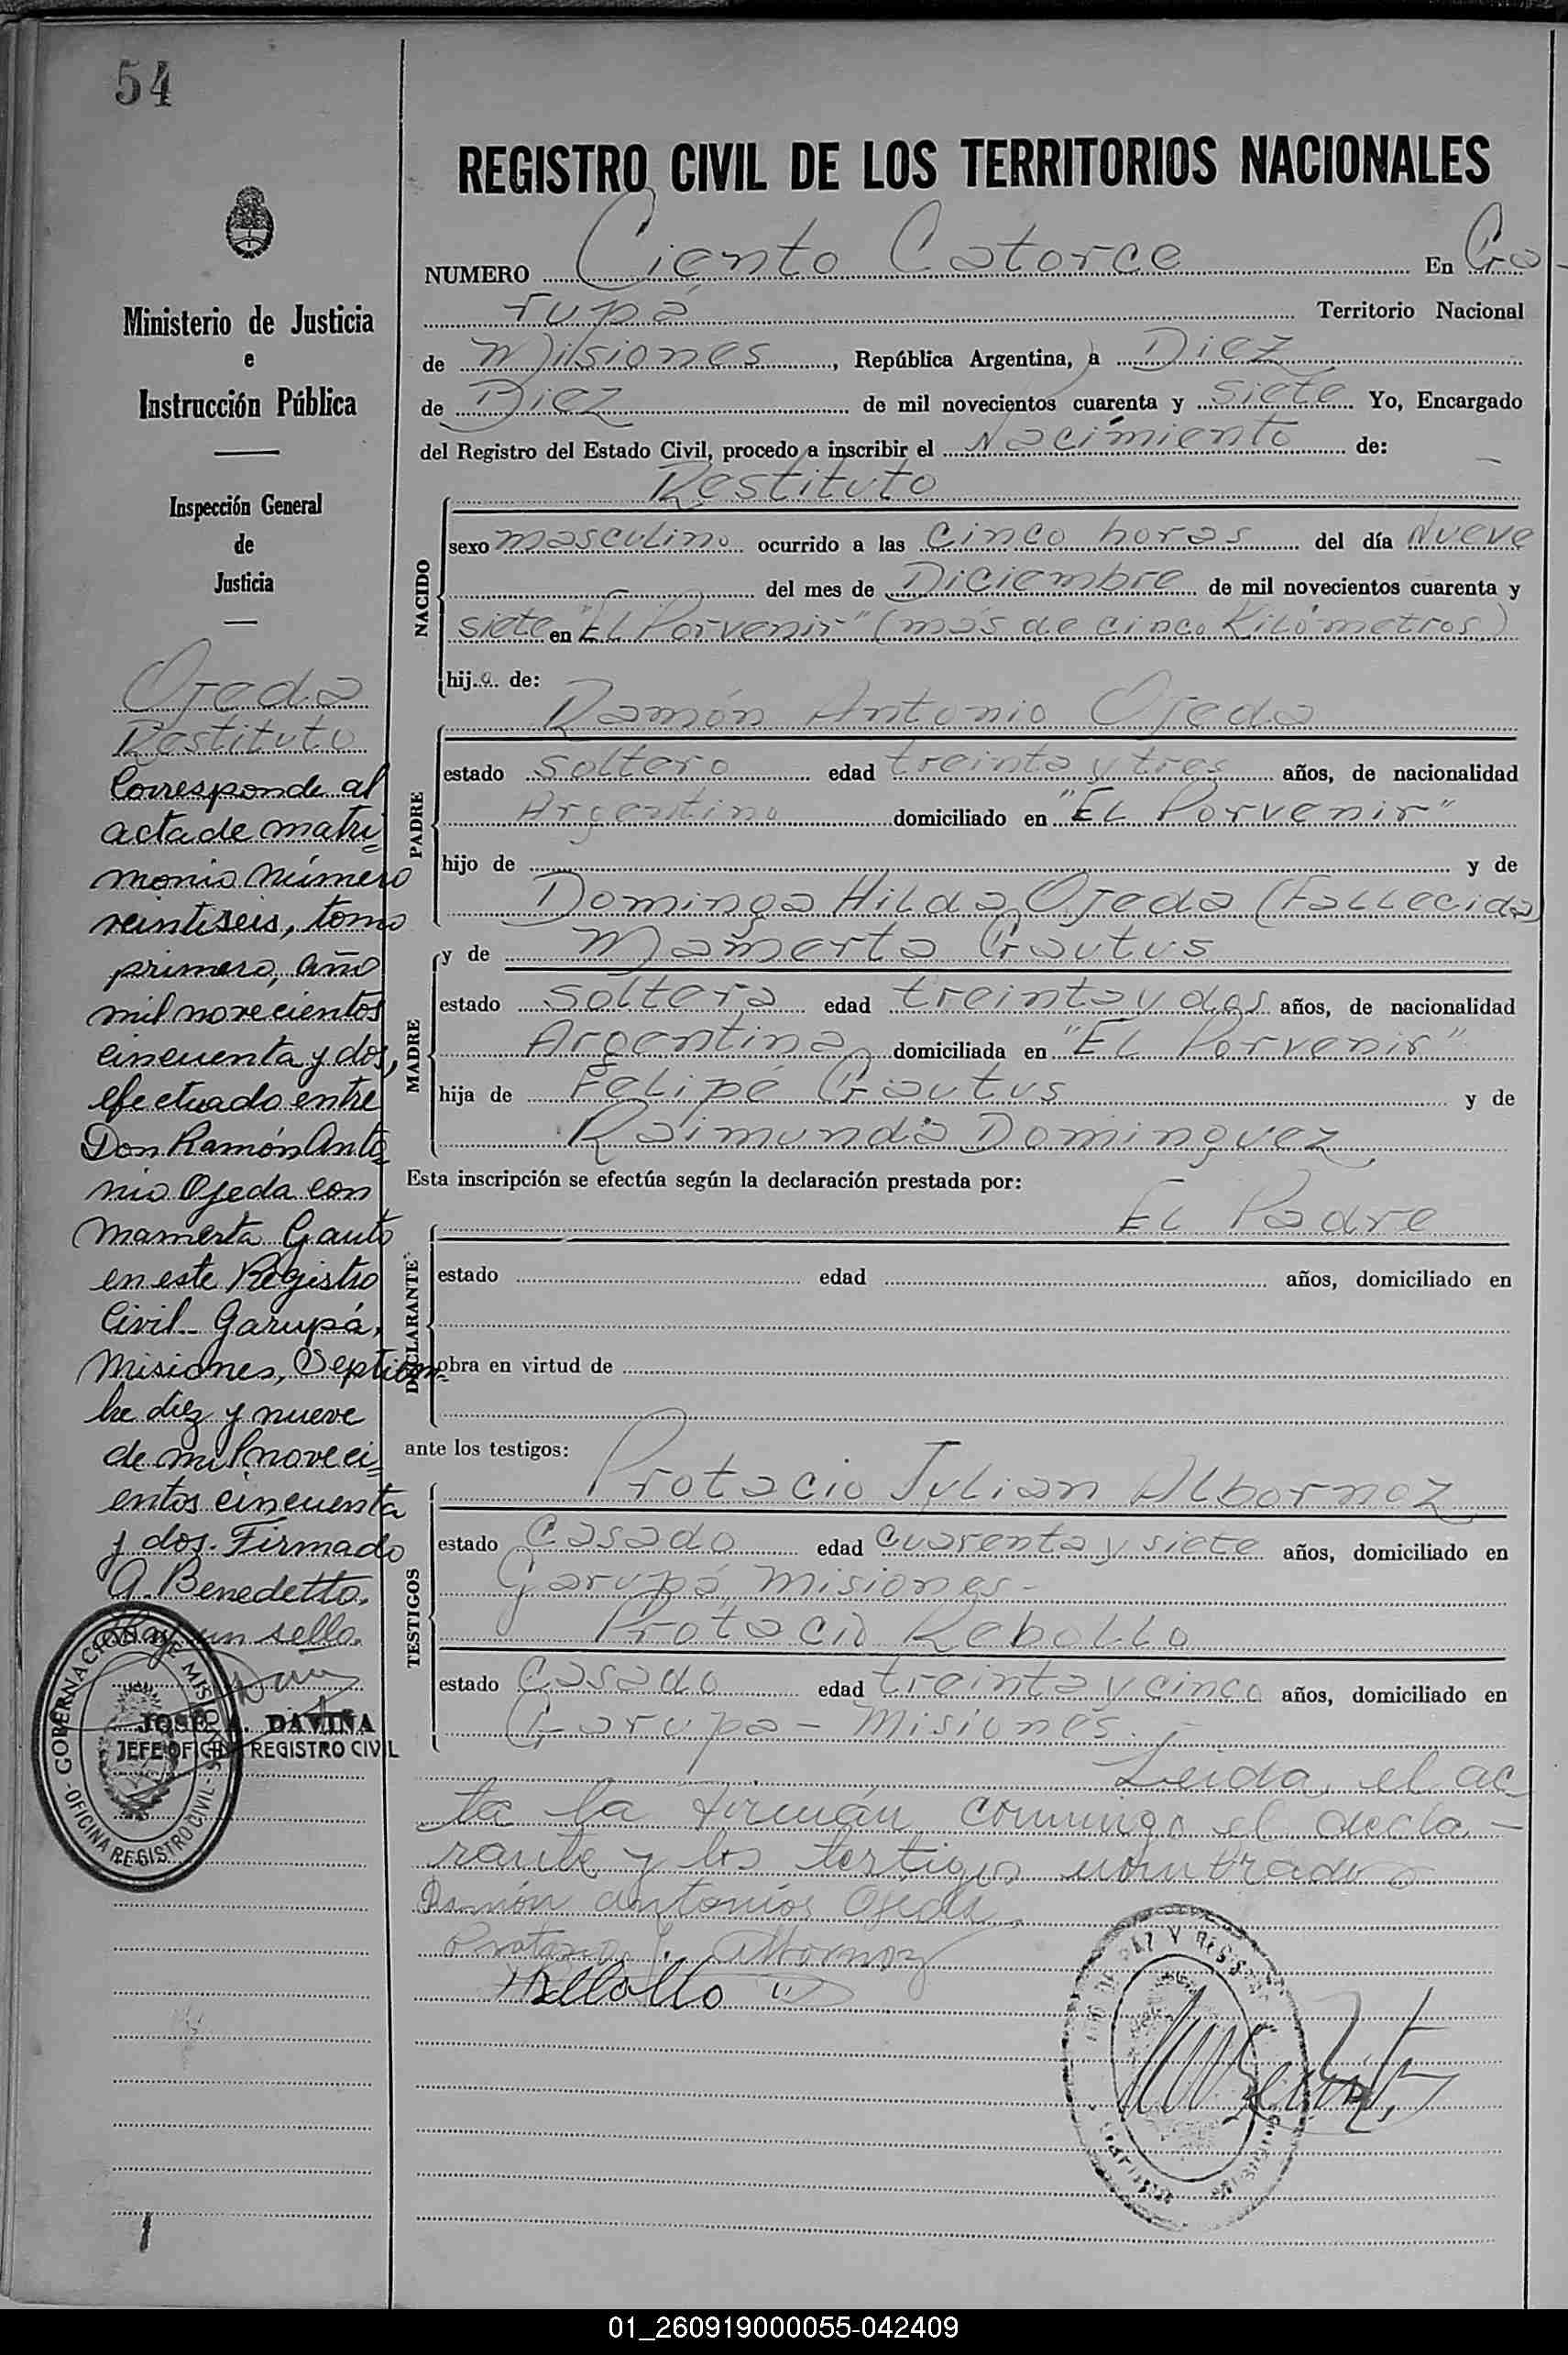 54
REGISTRO CIVIL DE LOS TERRITORIOS NACIONALES
Ministerio de Justicia
e
Instrucción Pública
Inspección General
de
Justicia
Ojeda
Restituto
Corresponde al
acta de matri
monio número
veintiseis, tomo
primero, año
mil novecientos
cincuenta y dos,
efectuado entre
Don Ramón Anto
nio Ojeda con
Mamerta Gauto
en este Registro
Civil - Garupá,
Misiones, Septiem
bre diez y nueve
de mil noveci
entos cincuenta
y dos. Firmado
A. Benedetto.
Hay un sello.
GOBERNACION DE MISIONES
OFICINA REGISTRO CIVIL
JOSE A. DAVIÑA
JEFE OFICINA REGISTRO CIVIL
NUMERO Ciento Catorce En Ga-
rupá Territorio Nacional
de Misiones, República Argentina, a Diez
de Diez de mil novecientos cuarenta y siete Yo, Encargado
del Registro del Estado Civil, procedo a inscribir el Nacimiento de:
NACIDO
Restituto
sexo masculino ocurrido a las cinco horas del día Nueve
del mes de Diciembre de mil novecientos cuarenta y
siete en "El Porvenir" (más de cinco Kilómetros)
hijo de:
PADRE
Ramón Antonio Ojeda
estado soltero edad treinta y tres años, de nacionalidad
Argentino domiciliado en "El Porvenir"
hijo de y de
Dominga Hilda Ojeda (Fallecida)
MADRE
y de Mamerta Gautus
estado soltera edad treinta y dos años, de nacionalidad
Argentina domiciliada en "El Porvenir"
hija de Felipe Gautus y de
Raimunda Dominguez
Esta inscripción se efectúa según la declaración prestada por:
DECLARANTE
El Padre
estado edad años, domiciliado en
obra en virtud de
ante los testigos:
TESTIGOS
Protacio Julian Albornoz
estado Casado edad cuarenta y siete años, domiciliado en
Garupá, Misiones-
Protacio Rebollo
estado Casado edad treinta y cinco años, domiciliado en
Garupa - Misiones.-
Leida, el ac
ta la firmán conmigo el decla-
rante y los testigos nombrados
Ramón Antonios Ojeda
Albornoz
Rebollo
01_260919000055-042409